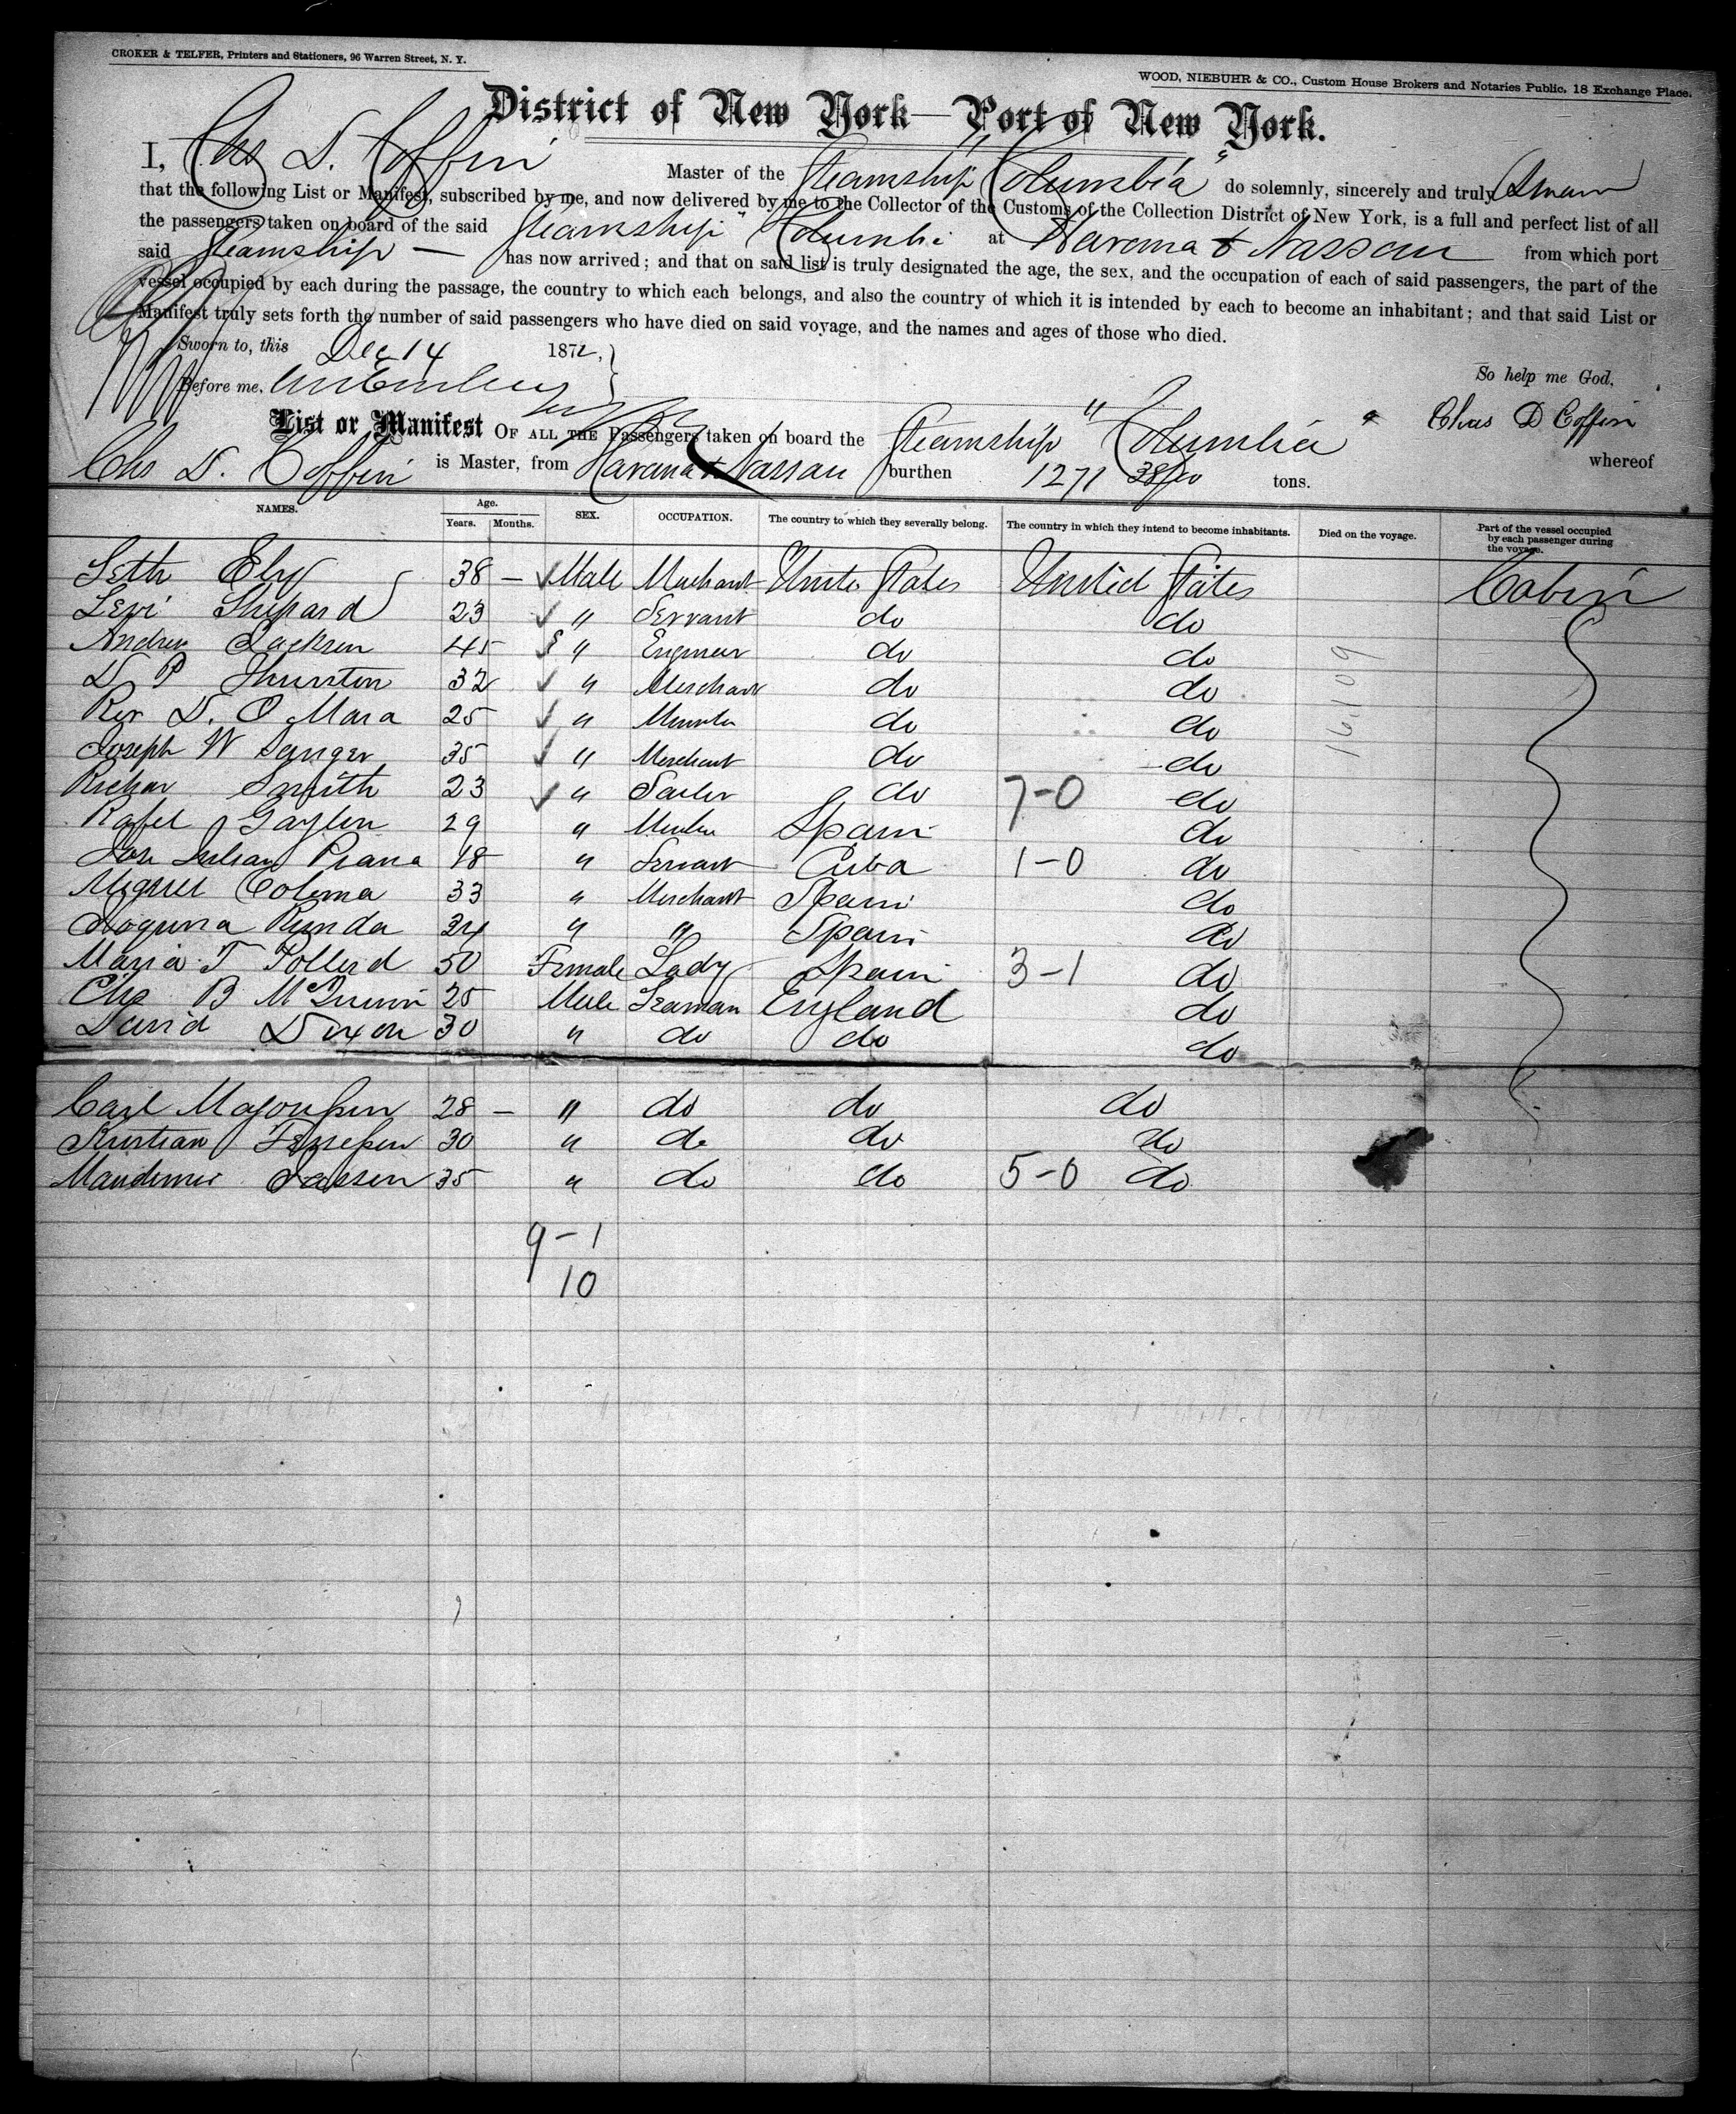 CROKER & TELFER, Printers and Stationers, 96 Warren Street, N. Y.
WOOD, NIEBUHR & CO., Custom House Brokers and Notaries Public, 18 Exchange Place.
District of New York—Port of New York.
I, Chs D. Coffin Master of the Steamship "Columbia" do solemnly, sincerely and truly Swear
that the following List or Manifest, subscribed by me, and now delivered by me to the Collector of the Customs of the Collection District of New York, is a full and perfect list of all
the passengers taken on board of the said Steamship "Columbi at Havana & Nassau from which port
said Steamship — has now arrived; and that on said list is truly designated the age, the sex, and the occupation of each of said passengers, the part of the
vessel occupied by each during the passage, the country to which each belongs, and also the country of which it is intended by each to become an inhabitant; and that said List or
Manifest truly sets forth the number of said passengers who have died on said voyage, and the names and ages of those who died.
Sworn to, this Dec 14 1872,
So help me God,
Before me,
Chas D Coffin
List or Manifest OF ALL THE Passengers taken on board the Steamship "Columbia" whereof
Chs D. Coffin is Master, from Havana & Nassau burthen 1271 tons.
NAMES. Age. Years. Months. SEX. OCCUPATION. The country to which they severally belong. The country in which they intend to become inhabitants. Died on the voyage. Part of the vessel occupied by each passenger during the voyage.
Seth Ely 38 — Male Merchant Unite States United States Cabin
Levi Shepard 23 " Servant do do
Andrew Jackson 45 " Engineer do do
D P Thurston 32 " Merchant do do
Rev D. O Mara 25 " do do
Joseph W Sanger 35 " Merchant do do
Richar Smith 23 " Sailor do 7-0 do
Rafel Gaylen 29 " Spain do
Jose Julian Piana 18 " Servant Cuba 1-0 do
Miguel Coloma 33 " Merchant Spain do
Runda 34 " " Spain do
Maria T Pollerd 50 Female Lady Spain 3-1 do
Chs B McQuinn 25 Male Seaman England do
David Dixon 30 " do do do
Carl 28 — " do do do
Kristian 30 " do do do
Jassen 35 " do do 5-0 do
16109
9-1
10